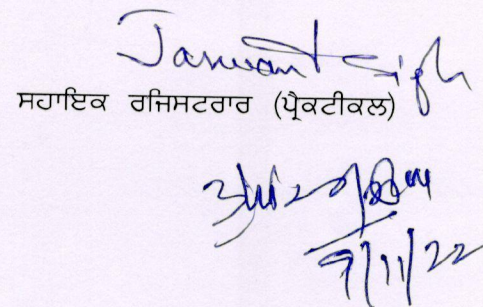 Jaswant Singh
ਸਹਾਇਕ ਰਜਿਸਟਰਾਰ (ਪ੍ਰੈਕਟੀਕਲ)
9/11/22